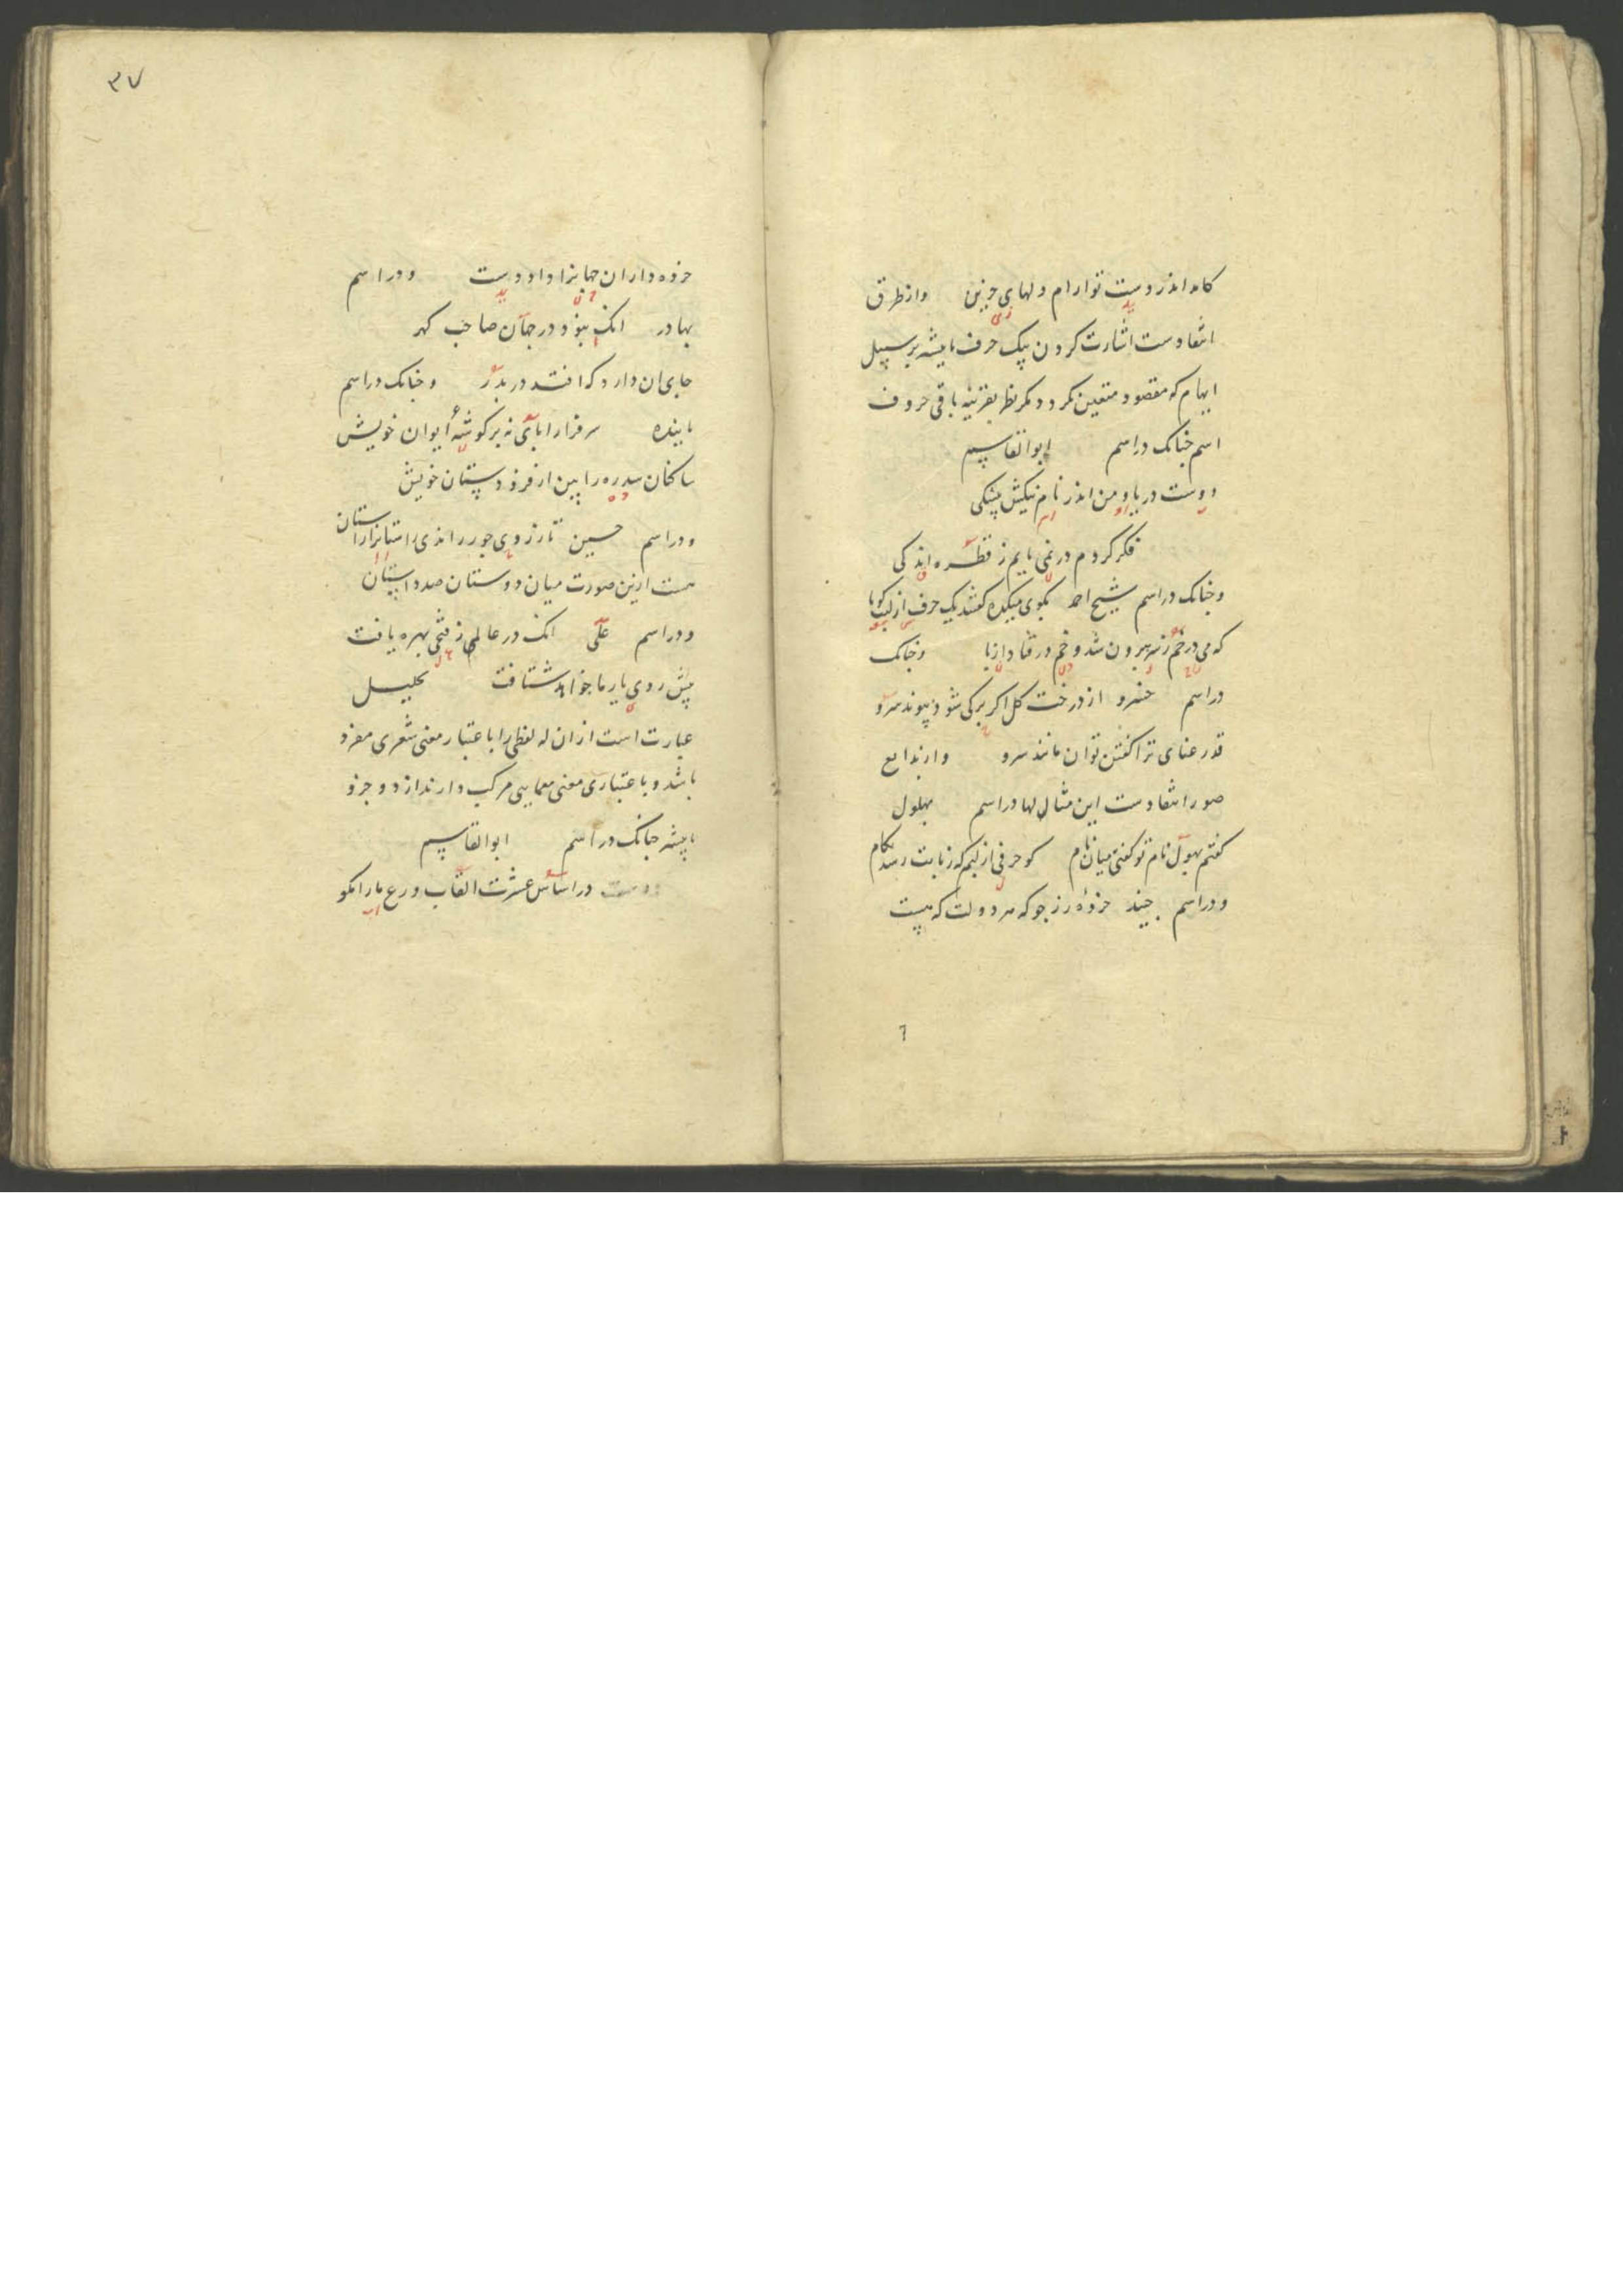 کامد اندر دست تو آرام دلهای حزین وز طرق
انتقادست اشارت کردن بیک حرف یا بیشتر بر سبیل
ابهام که مقصود متعین نکردد مکر نظر بقرینه باقی حروف
اسم چنانک در اسم ابو القاسم
دوست در یاد من اندر نام نیکش
فکر کردم در نمی یابم ز قطره اندکی
و چنانک در اسم شیخ احمد بکوی میکده یک حرف از لب
که می در خم ز سر بیرون شد و خم در قفا و چنانک
در اسم خسرو از درخت کل اکر برکی شود پیوند سرو
قد رعنای ترا کفتن توان مانند سرو و از بدایع
صور انتقادست این مثالها در اسم بهلول
کفتم بهول نام تو کفتی میان نام کو حرفی از لبم که زبانت رسد بکام
و در اسم جنید خرده زر جو که هر دولت که هست
۳۷
خرده داران جهانرا داد دست و در اسم
بهادر انک بنود در جهان صاحب کهر
جای آن دارد که افتد در بدر و چنانک در اسم
پاینده سرفرازا پای نه بر کوشه ایوان خویش
ساکنان سدره را بین از فرودستان خویش
و در اسم حسین تا ز روی جور راندی راستانرا ز آستان
هست ازین صورت میان دوستان صد داستان
و در اسم علی انک در عالم ز فتحی بهره یافت
پیش روی یار ما خواهد شتافت تحلیل
عبارت است از آن که لفظی را باعتبار معنی شعری مفرد
باشد و باعتبار معنی معمایی مرکب دارند از دو جزو
یا بیشتر چنانک در اسم ابو القاسم
در اساس عشرت القاب ورع ما را مکو